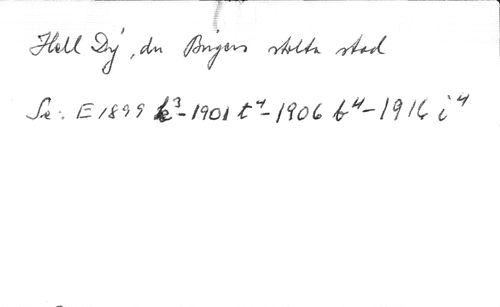 Hell Dij, du Birgers stolta stad
Se: E 1899 k³ - 1901 t⁴ - 1906 b⁴ - 1916 i⁴